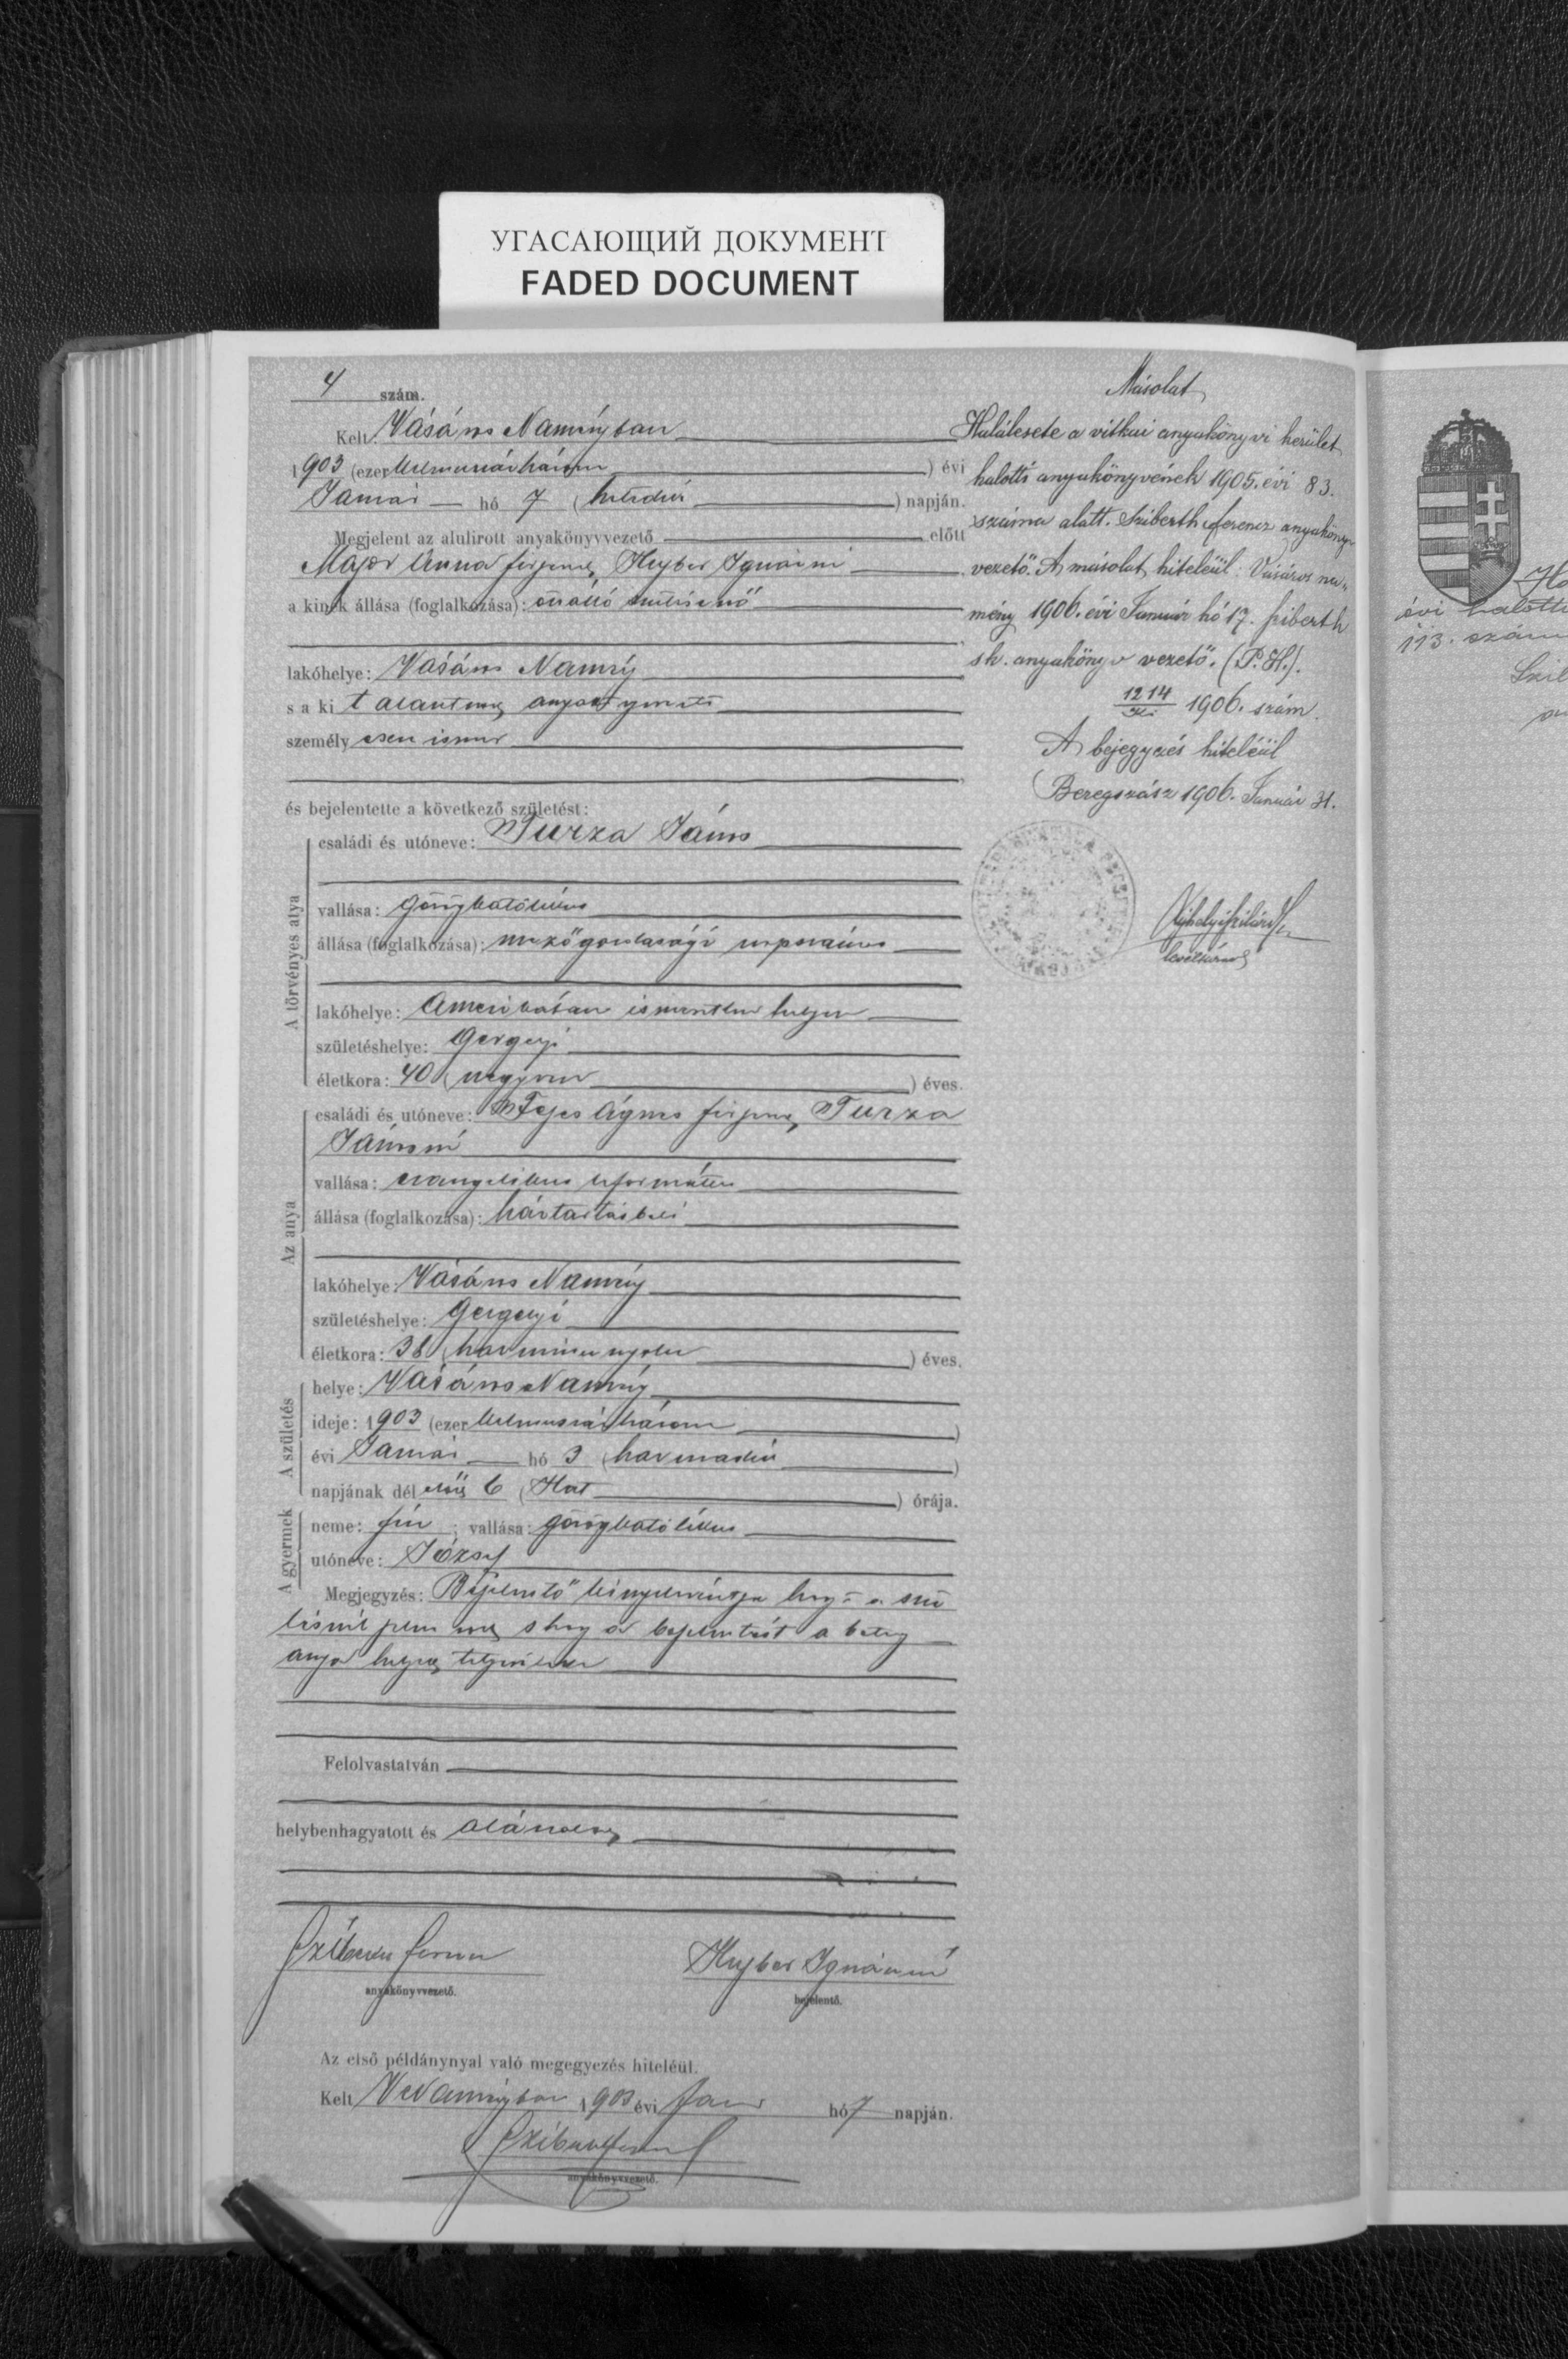 УГАСАЮЩИЙ ДОКУМЕНТ
FADED DOCUMENT
4 szám.
Kelt Vásáros Naményban
1903 (ezer kilencszázhárom ) évi
Január hó 7 (hetedik ) napján.
Megjelent az alulirott anyakönyvvezető előtt
Major Anna férjezett Hujber Ignáczné
a kinek állása (foglalkozása): önálló szülésznő
lakóhelye: Vásáros Namény
s a ki t alantirott anyakönyvvezető
személyesen ismer
és bejelentette a következő születést:
A törvényes atya
családi és utóneve: Turza János
vallása: görögkatólikus
állása (foglalkozása): mezőgazdasági napszámos
lakóhelye: Amerikában ismeretlen helyen
születéshelye: Gergelyi
életkora: 40 (negyven ) éves.
Az anya
családi és utóneve: Fejes Ágnes férjezett Turza
Jánosné
vallása: evangelikus református
állása (foglalkozása): háztartásbeli
lakóhelye: Vásáros Namény
születéshelye: Gergelyi
életkora: 38 (harmincznyolcz ) éves.
A születés
helye: Vásáros Namény
ideje: 1903 (ezer kilencszázhárom )
évi Január hó 3 (harmadik )
napjának dél előtt 6 (Hat ) órája.
A gyermek
neme: fiú ; vallása: görögkatólikus
utóneve: József
Megjegyzés: Bejelentő kinyilvánítja hogy a szü
lésnél jelen volt s hogy a bejelentést a beteg
anya helyett teljesítette
Felolvastatván
helybenhagyatott és aláíratott
Sziberth Ferencz
anyakönyvvezető.
Hujber Ignáczné
bejelentő.
Az első példánynyal való megegyezés hiteléül.
Kelt VNaményban 1903 évi Jan hó 7 napján.
Sziberth Ferencz
anyakönyvvezető.
Másolat
Halálesete a vitkai anyakönyvi kerület
halotti anyakönyvének 1905. évi 83.
száma alatt. Sziberth Ferencz anyakönyv
vezető. A másolat hiteléül: Vásáros na-
mény 1906. évi Január hó 17. Sziberth
sk. anyakönyv vezető. (P. H.).
1214 1906. szám.
A bejegyzés hiteléül
Beregszász 1906. Január 31.
levéltárnok
évi halotti
113. szám